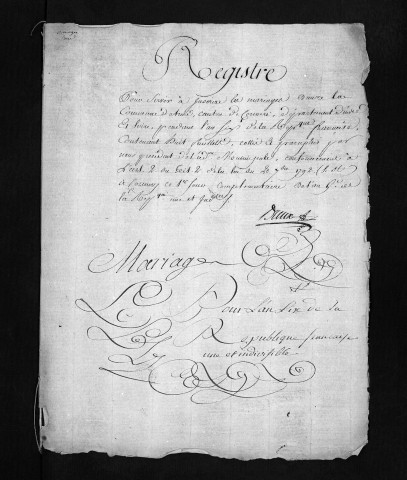 Registre
Pour servir à Inscrire les mariages dans la
Commune d'
et Loire, pendant l'an six de la Répque française,
Contenant huit feuillets, cotté et paraphé par
nous président de l'adm. Municipale, conformément à
l'art. 2 du tit. 2 de la loi du 20 7bre 1792 (v. st.)
à ce 1er Jour complémentaire de l'an 5e de
la Rép. une et Ind.
Mariage
Pour L'an Six de la
République française
une et indivisible